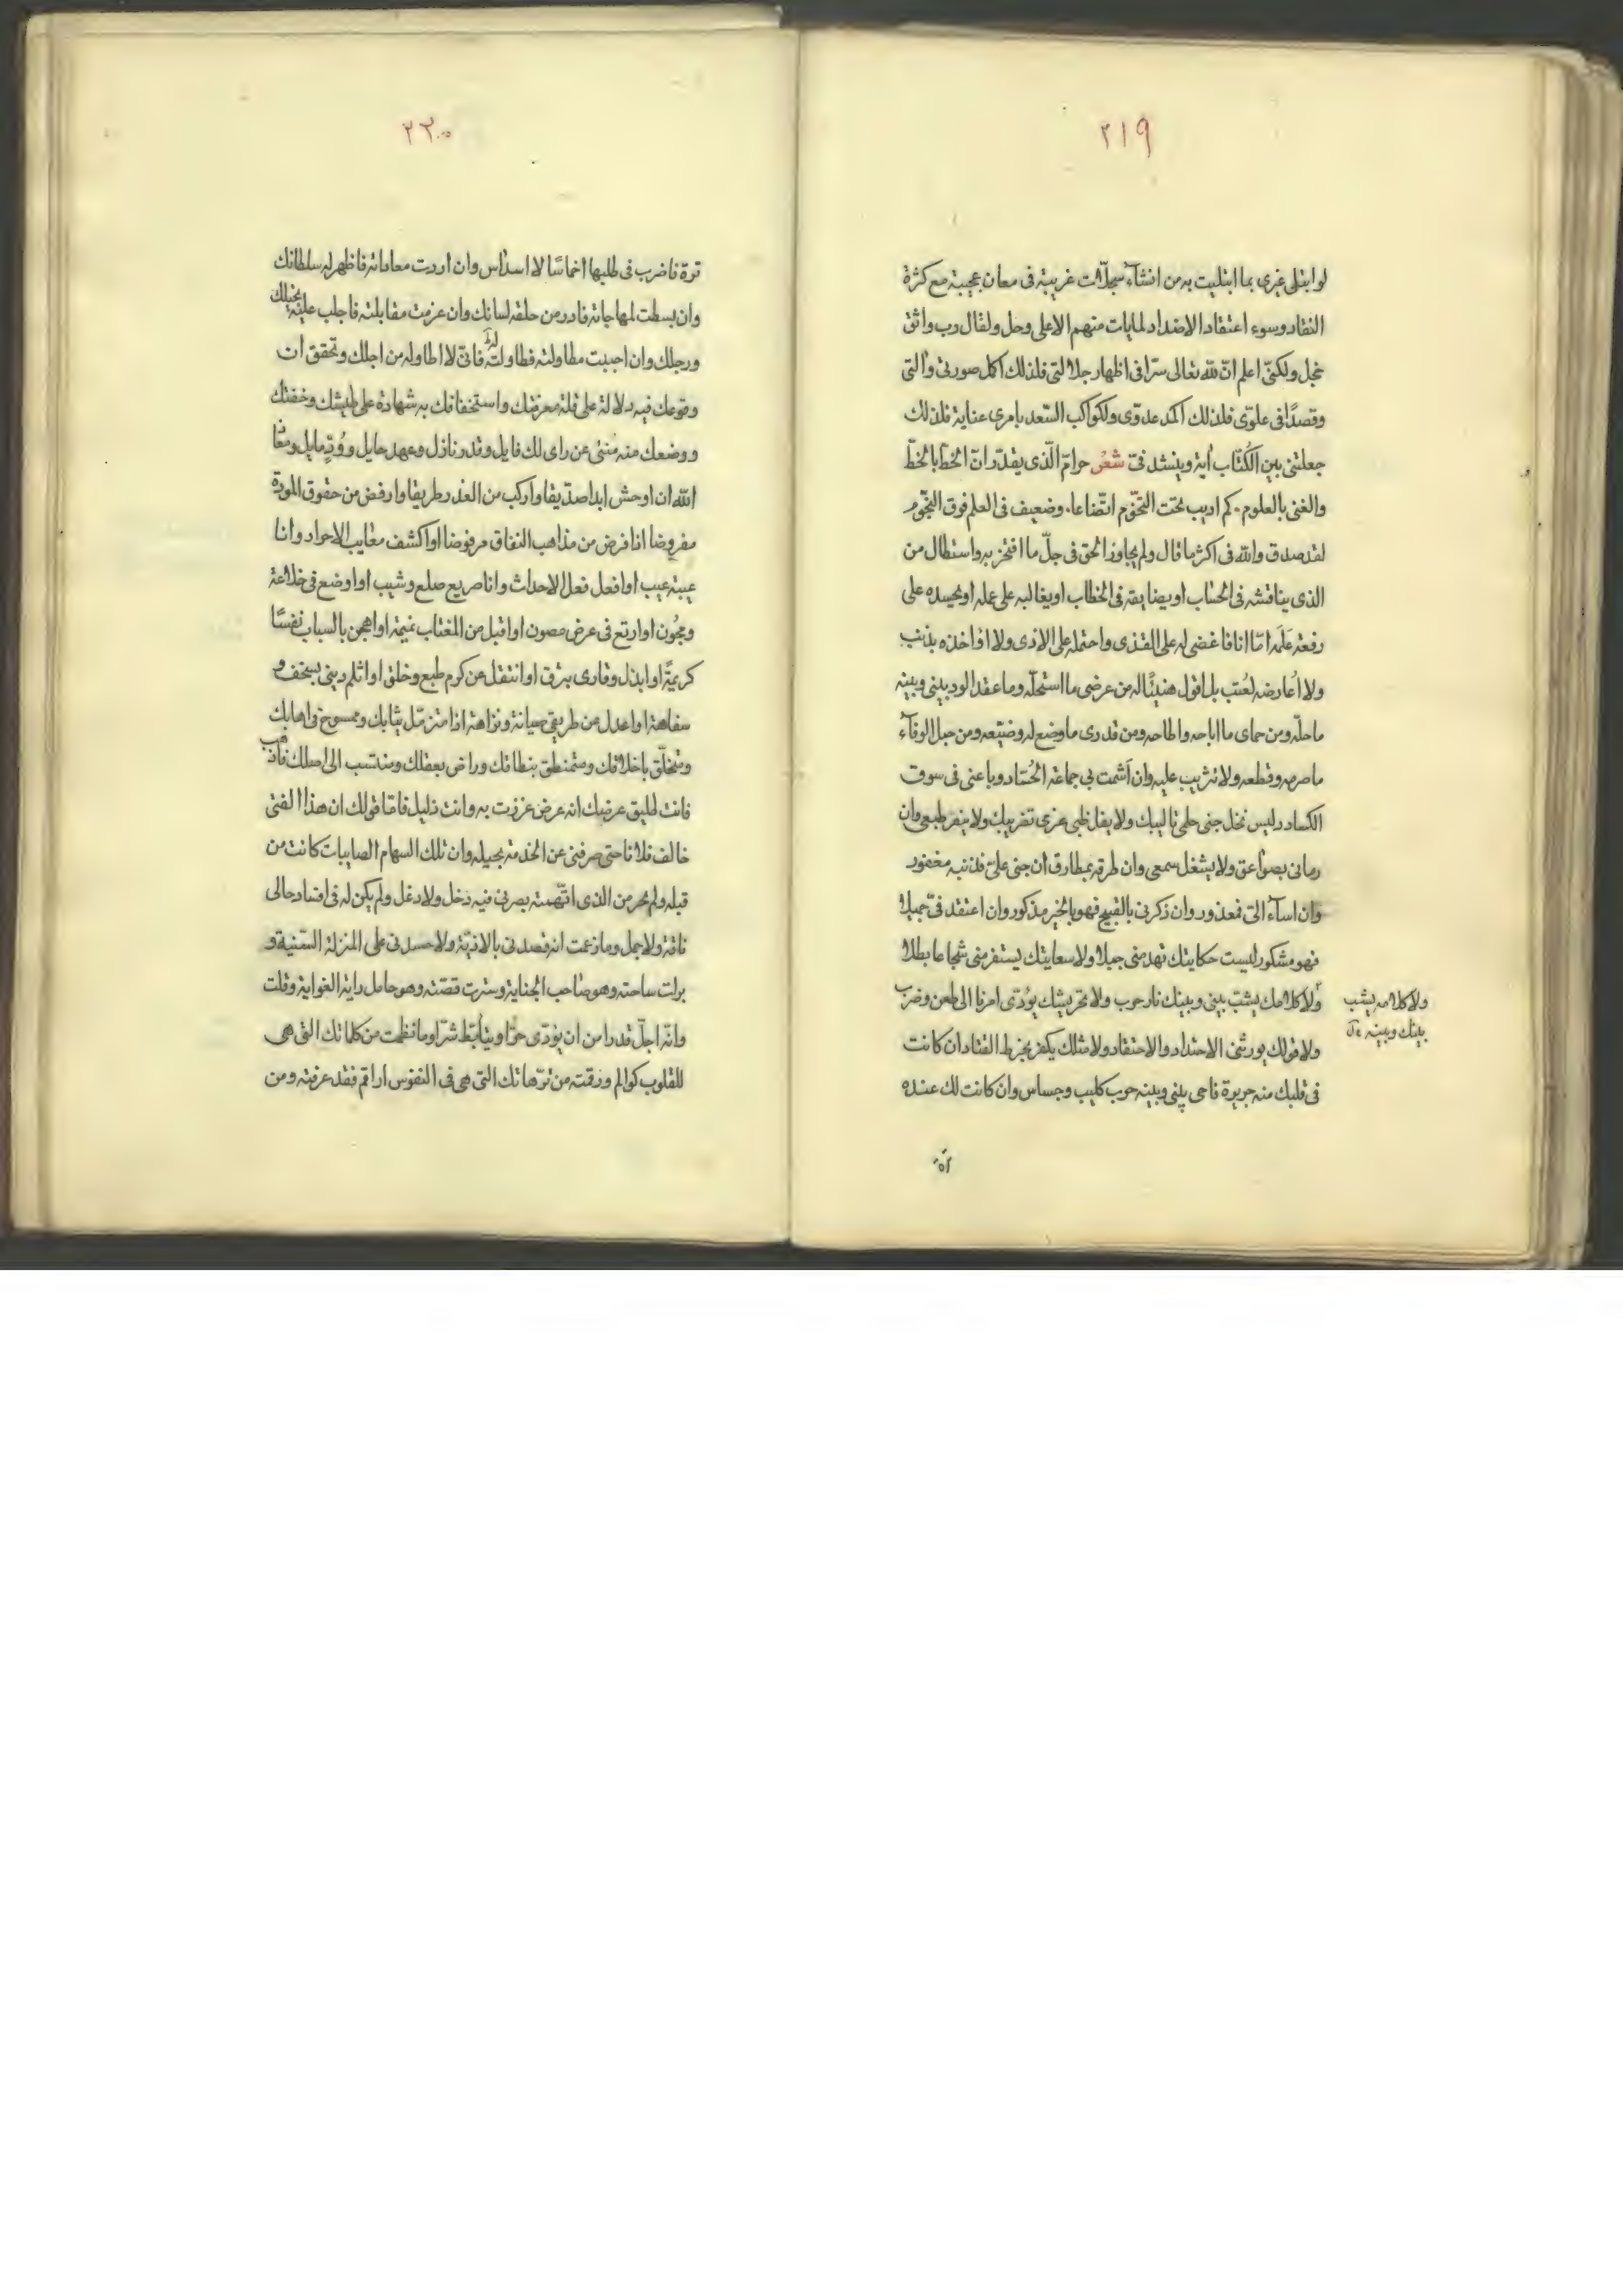 ٢١٩
لو ابتلى غيرى بما ابتليت به من انشآء سجلّات غريبة فى معان عجيبة مع كثرة
النقاد وسوء اعتقاد الاضداد لمابات منهم الاعلى وحل ولقال رب واثق
خجل ولكنّى اعلم انّ لله تعالى سرّا فى اظهار جلالتى فلذلك اكمل صورتى وآلتى
وقصدًا فى علوّى فلذلك اكمد عدوّى ولكواكب السّعد بامرى عناية فلذلك
جعلتنى بين الكُتّاب أية وينشد فىّ شعر حوامّ الّذى يقدّر انّ الخطّ بالخطّ
والغنى بالعلوم. كم اديب تحت التخوم اتّضاعا. وضعيف فى العلم فوق النّجوم
لقد صدق والله فى اكثر ما قال ولم يجاوز الحق فى جلّ ما افتخر به واستطال من
الذى يناقشه فى الحساب او يضايقه فى الخطاب او يغالبه على عمله او يحسده على
رفعة عَلَمه امّا انا فاغضى له على القذى واحتمله على الاذى ولا اؤاخذه بذنب
ولا اُعارضه لعُتب بل اقول هنيئًا له من عرضى ما استحلّه وما عقد الود بينى وبينه
ما حلّه ومن حماى ما اباحه واطاحه ومن قدرى ما وضع له وضيّعه ومن حبل الوفآء
ما صرمه وقطعه ولا تثريب عليه وان اَشمت بى جماعة الحُسّاد وباعنى فى سوق
الكساد وليس نخل جنى حلمى تاليبك ولا يفل ظبى عزى تقريبك ولا ينفر طبعى وان
رمانى بصواعق ولا يشغل سمعى وان طرقه بمطارق ان جنى علىّ فذنبه مغفور
وان اسآء الىّ فمعذور وان ذكرنى بالقبيح فهو بالخير مذكور وان اعتقد فىّ جميلا
فهو مشكور ليست حكايتك تهد منى جبلا ولا سعايتك يستفز منى شجاعا بطلا
ولا كلامك يشبّ بينى وبينك نار حرب ولا تحريشك يؤدّى امرنا الى طعن وضرب
ولا كلامه يشب
بينك وبينه
ولا قولك يورثنى الاحتداد والاحتقاد ولا مثلك يكفر بخرط القتاد ان كانت
فى قلبك منه جريرة فاحى بينى وبينه حرب كليب وجساس وان كانت لك عنده
٢٢٠
ترة فاضرب فى طلبها اخماسًا لا اسداس وان اردت معاداته فاظهر له سلطانك
وان بسطت لمهاجاته فادر من حلقه لسانك وان عزمت مقابلته فاجلب عليه بخيلك
ورجلك وان احببت مطاولته فطاوله فانىّ لا اطاوله من اجلك وتحقق ان
وقوعك فيه دلالة على قلة معرفتك واستخفافك به شهادة على طيشك وخفتك
ووضعك منه مُنبئى عن راى لك فايل وقدر نازل وعهد حايل ووُدّ مايل ومعاذ
الله ان اوحش ابدا صدّيقا واركب من الغدر طريقا وارفض من حقوق المودة
مفروضا انا فرض من مذاهب النفاق مرفوضا او اكشف معايب الاحرار وانا
عيبة عيب او افعل فعل الاحداث وانا صريع صلع وشيب او اوضع فى خلاعة
ومجُون او ارتع فى عرض مصون او اقبل من المغتاب نميمة او اهجن بالسباب نفسًا
كريمةً او ابذل وقارى بنزق او انتقل عن كرم طبع وخلق او اثلم دينى بسخف و
سفاهة او اعدل عن طريقى صيانة ونزاهة اذا متزمّل بثيابك وممسوخ فى اهابك
ومتخلّق باخلاقك ومتمنطق بنطاقك وراض بعقلك ومنتسب الى اصلك فاذهب
فانت طليق عرضك انه عرض عززت به وانت ذليل فامّا قولك ان هذا الفتى
خالف فلانا حتى صرفنى عن الخدمة بجميله وان تلك السهام الصايبات كانت من
قبله ولم محر من الذى اتّهمته بصرنى فيه دخل ولا دغل ولم يكن له فى افساد حالى
ناقة ولا جمل وما زعمت انه قصدنى بالاذيّة ولا حسدنى على المنزلة السّنية و
برات ساحته وهو صاحب الجناية وسترت قصّته وهو حامل راية الغواية وقلت
وانّه اجلّ قدرا من ان يؤذى حرًّا ويتأبّط شرّا وما نظمت من كلماتك التى هى
للقلوب كوالم ورقته من ترّهاتك التى هى فى النفوس اراقم فقد عرفته ومن